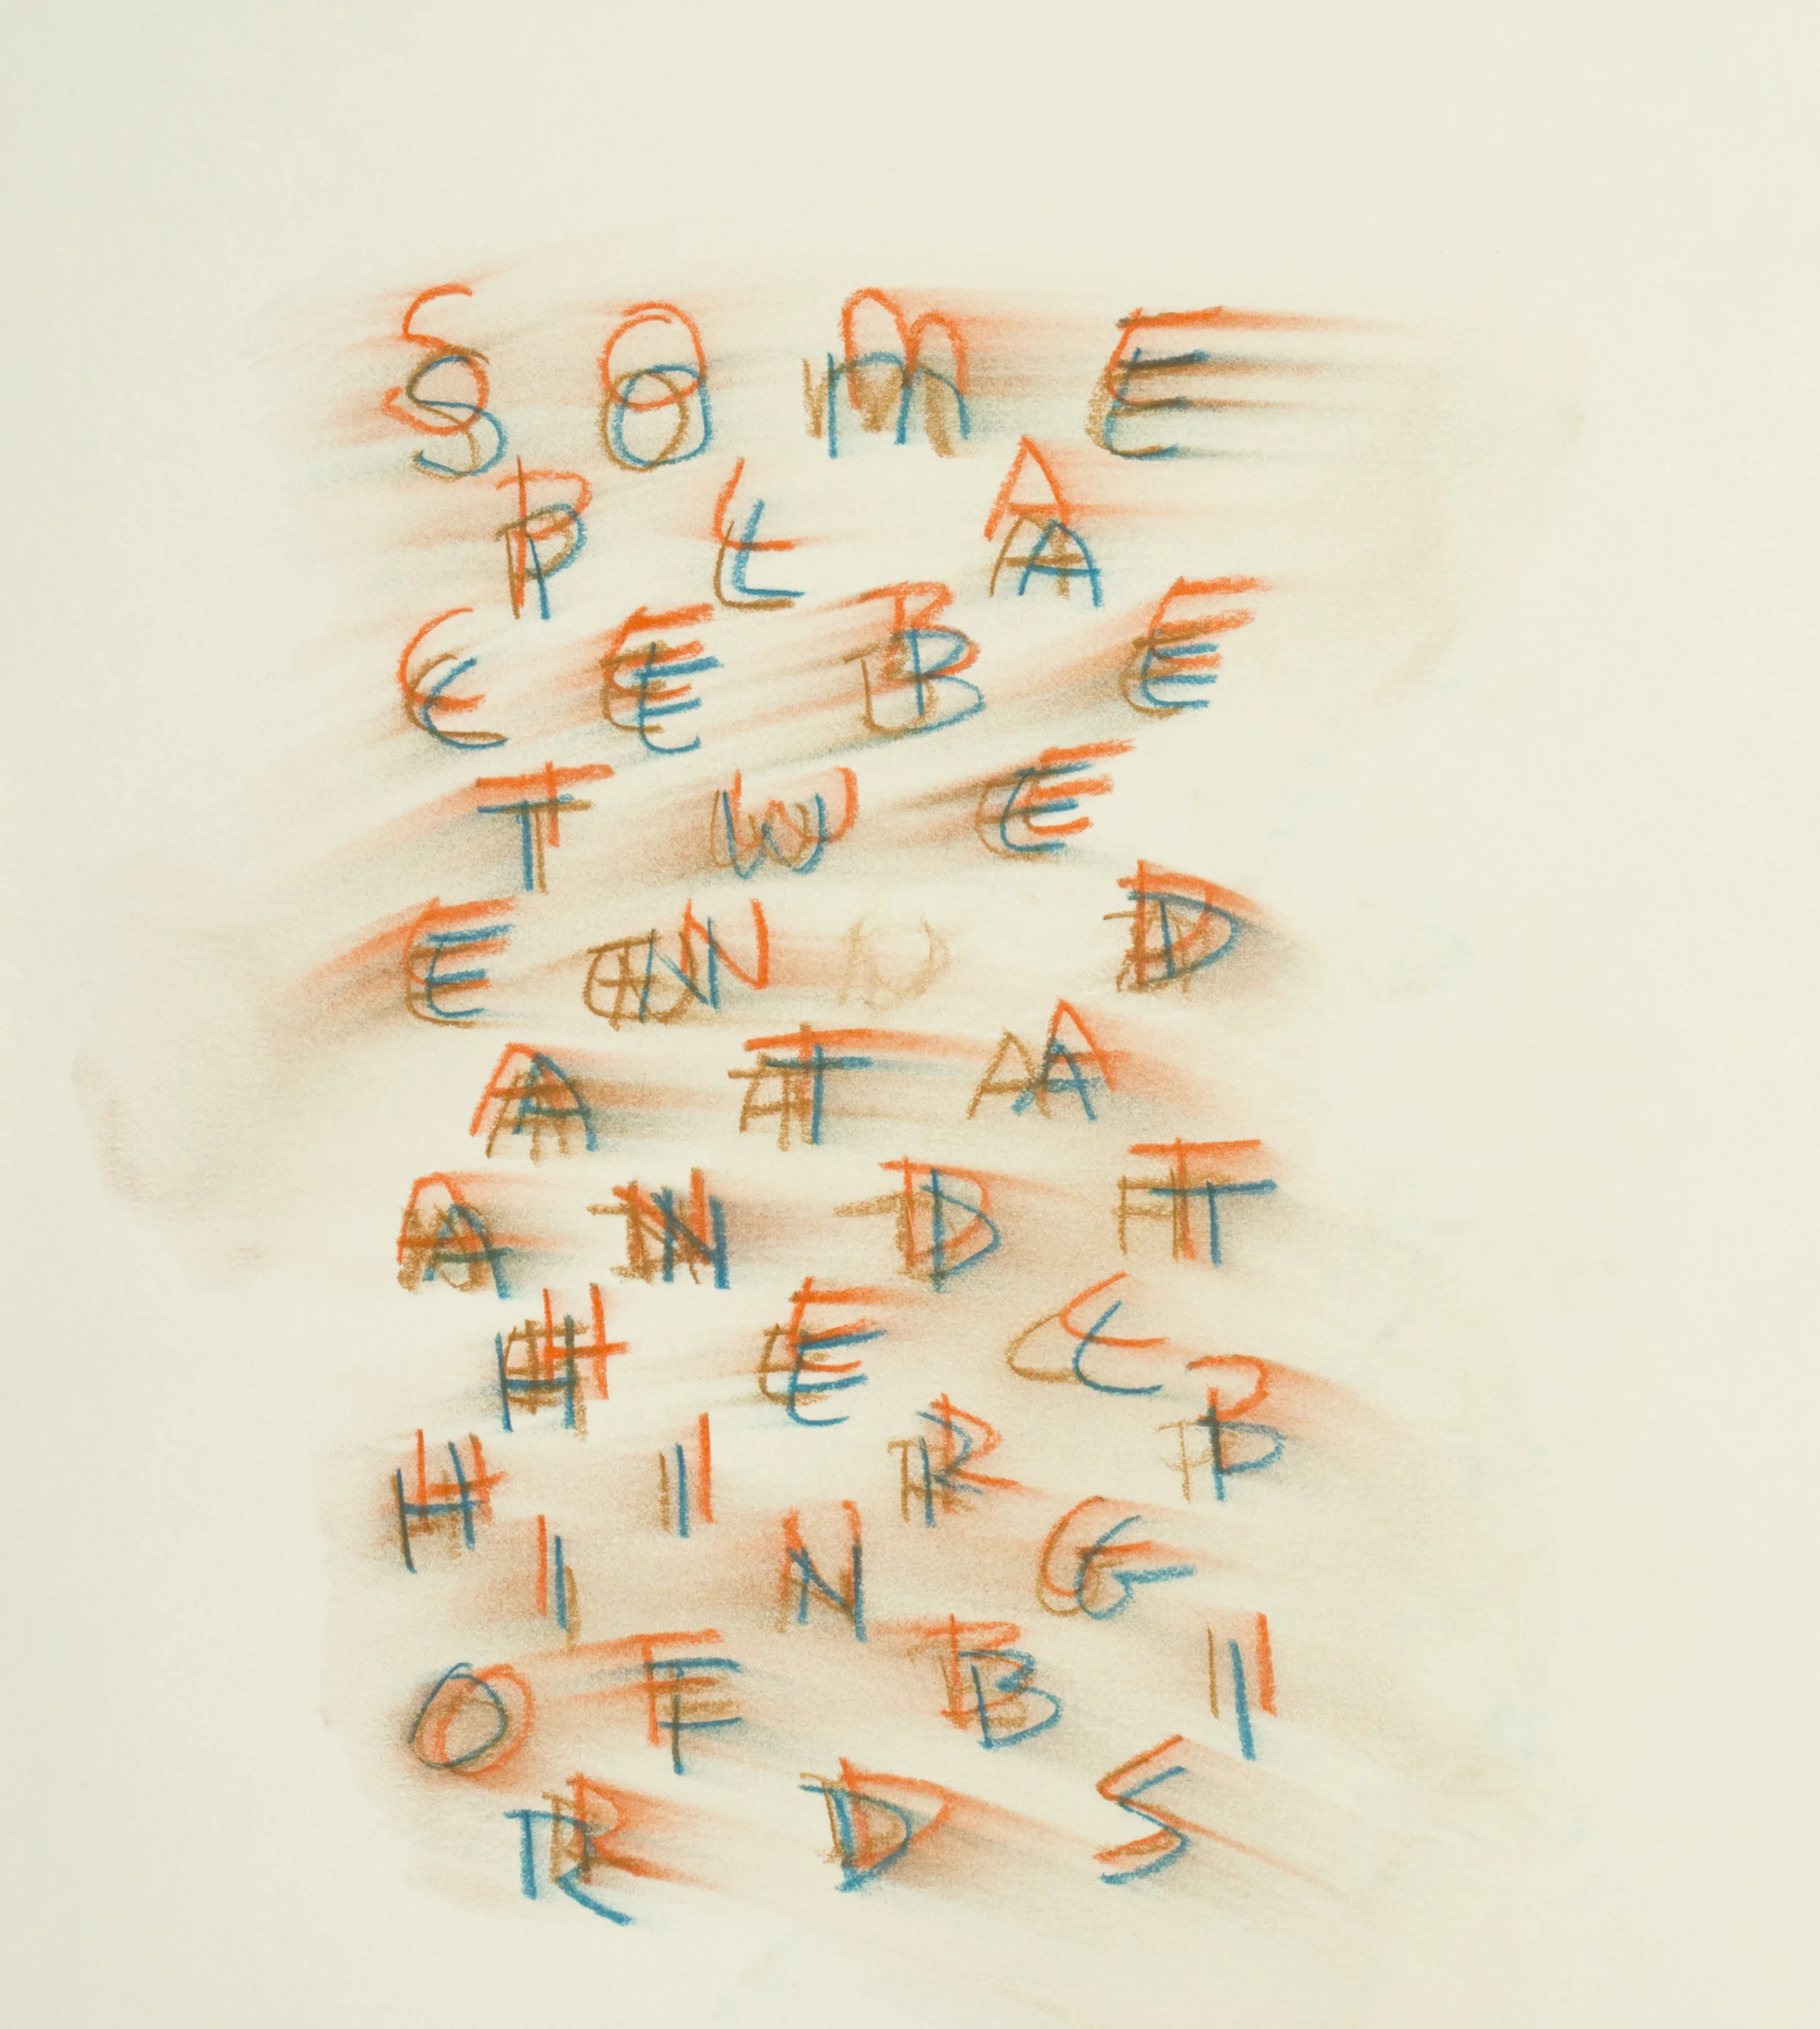 SOME
PLA
CEBE
TWE
EN D
ATA
ANDT
HEC
HIRP
ING
OFBI
RDS